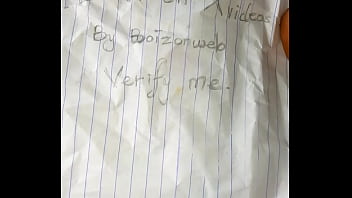 on Xvideos
By Boizonweb
Verify me.